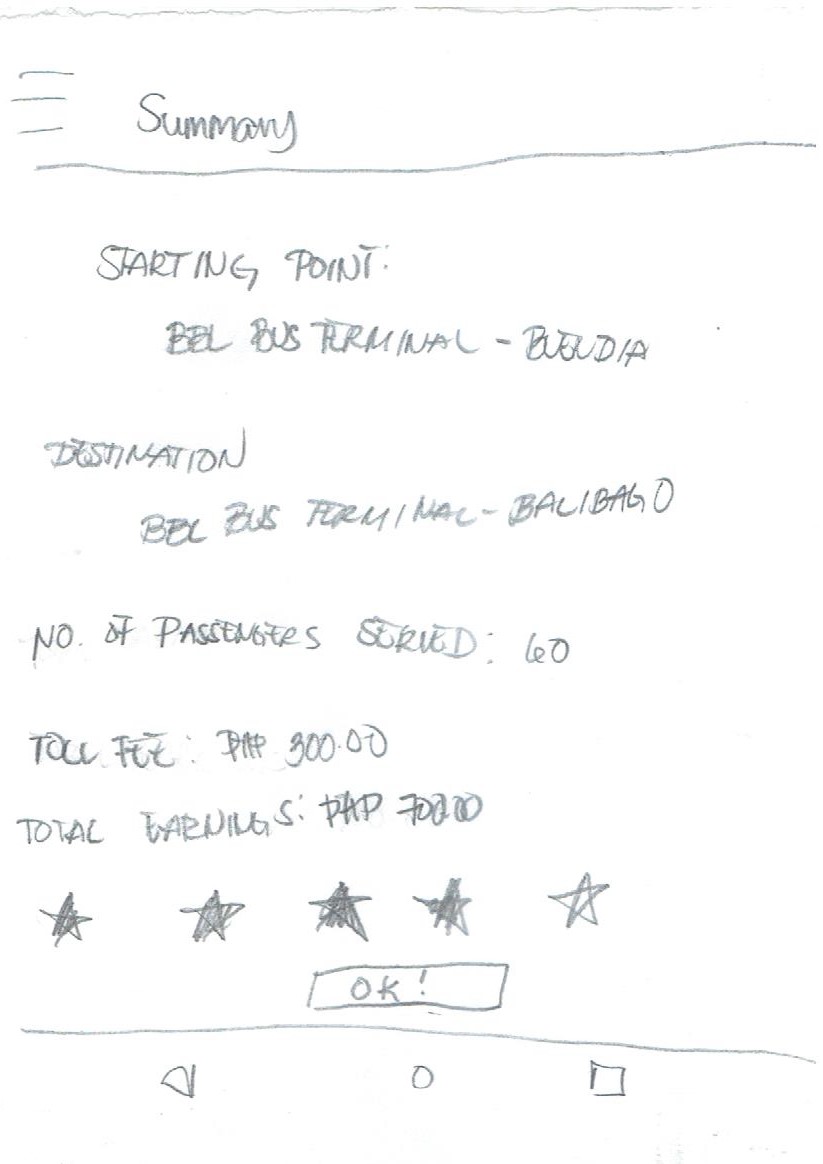 Summary
STARTING POINT:
BBL BUS TERMINAL - BUENDIA
DESTINATION
BBL BUS TERMINAL - BALIBAGO
NO. OF PASSENGERS SERVED: 60
TOLL FEE: PHP 300.00
TOTAL EARNINGS: PHP
OK!